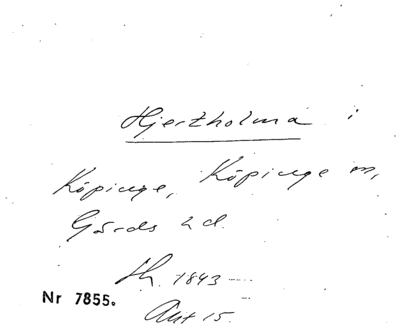 Hjertholma i
Köpinge, Köpinge sn,
Gärds hd.
1843
Nr 7855.
Akt 15.